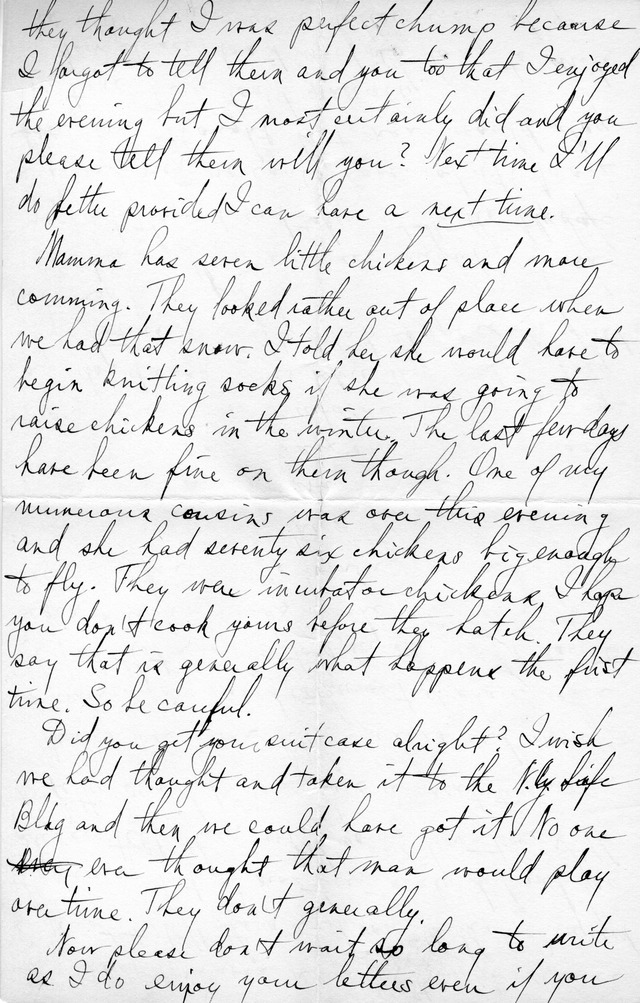 they thought I was perfect chump because
I forgot to tell them and you too that I enjoyed
the evening but I most certainly did and you
please tell them will you? Next time I'll
do better provided I can have a next time.
Mamma has seven little chickens and more
comming. They looked rather out of place when
we had that snow. I told her she would have to
begin knitting socks if she was going to
raise chickens in the winter. The last few days
have been fine on them though. One of my
numerous cousins was over this evening
and she had seventy six chickens big enough
to fly. They were incubator chickens. I hope
you don't cook yours before they hatch. They
say that is generally what happens the first
time. So be careful.
Did you get your suit case alright? I wish
we had thought and taken it to the N.Y. Life
Bldg and then we could have got it. No one
ever thought that man would play
overtime. They don't generally.
Now please don't wait so long to write
as I do enjoy your letters even if you